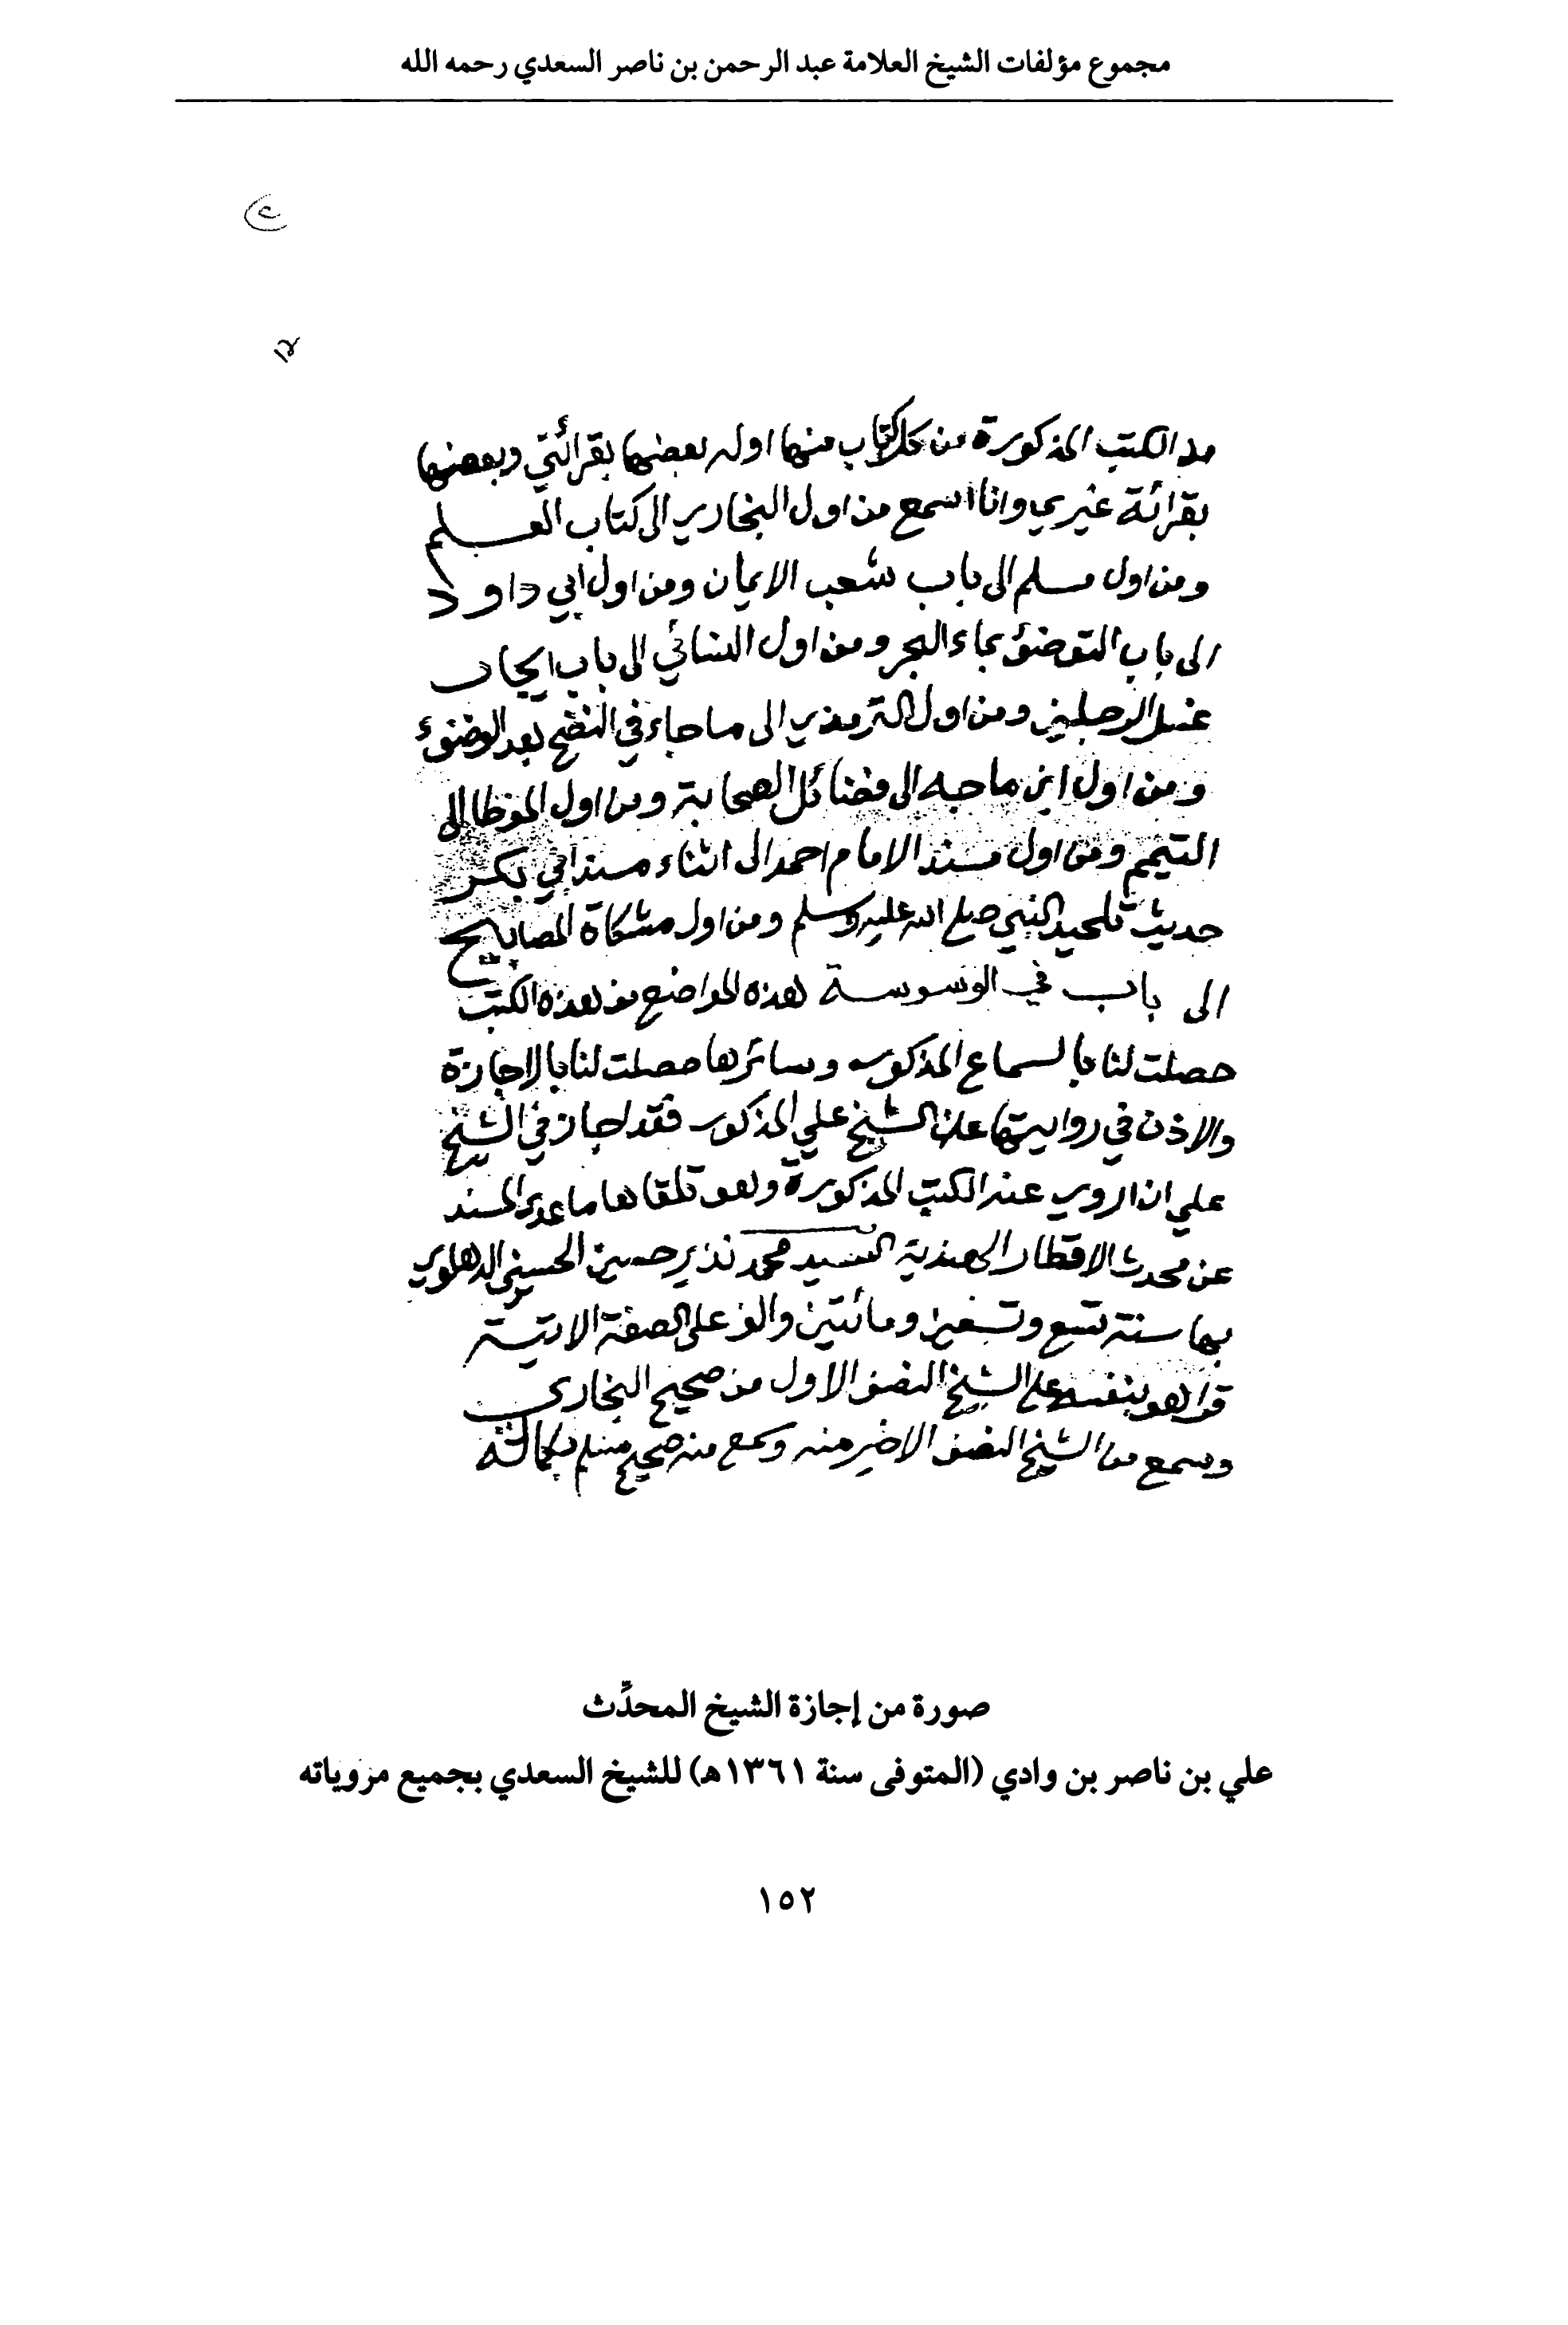 مجموع مؤلفات الشيخ العلامة عبد الرحمن بن ناصر السعدي رحمه الله
من الكتب المذكورة من كل كتاب منها اوله بعضها بقرائتي وبعضها
بقرائة غيري وانا اسمع من اول البخاري الى كتاب العلم
ومن اول مسلم الى باب شعب الايمان ومن اول ابي داود
الى باب التوضؤ بماء البحر ومن اول النسائي الى باب ايجاب
غسل الرجلين ومن اول الترمذي الى ما جاء في النضح بعد الوضوء
ومن اول ابن ماجه الى فضائل الصحابة ومن اول الموطا الى
التيمم ومن اول مسند الامام احمد الى اثناء مسند ابي بكر
حديث تلحيد النبي صلى الله عليه وسلم ومن اول مشكاة المصابيح
الى باب في الوسوسة هذه المواضع من هذه الكتب
حصلت لنا بالسماع المذكور وسائرها حصلت لنا بالاجازة
والاذن في روايتها عن الشيخ علي المذكور فقد اجازني الشيخ
علي ان اروي عنه الكتب المذكورة وهو تلقاها ماعدى المسند
عن محدث الاقطار الهندية السيد محمد نذير حسين الحسيني الدهلوي
بها سنة تسع وتسعين ومائتين والف على الصفة الاتية
قرا هو بنفسه على الشيخ النصف الاول من صحيح البخاري
وسمع من الشيخ النصف الاخير منه وسمع منه صحيح مسلم بكماله
صورة من إجازة الشيخ المحدِّث
علي بن ناصر بن وادي (المتوفى سنة ١٣٦١هـ) للشيخ السعدي بجميع مروياته
١٥٢